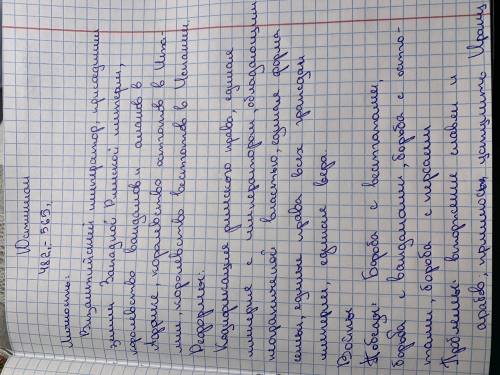 Юстиниан
482 - 565.
Личность:
Византийский император, присоединил
земли Западной Римской империи,
королевство вандалов и аланов в
Африке, королевство остготов в Ита-
лии, королевство вестготов в Испании
Реформы:
Кодификация римского права, единая
империя с императором, обладающим
неограниченной властью, единая форма
семьи, единые права всех граждан
империи, единая вера.
Войны
Победы: Борьба с восстанием,
борьба с вандалами, борьба с остго-
тами, борьба с персами
Проблемы: вторжение славян и
арабов; пришлось уступить Ирану